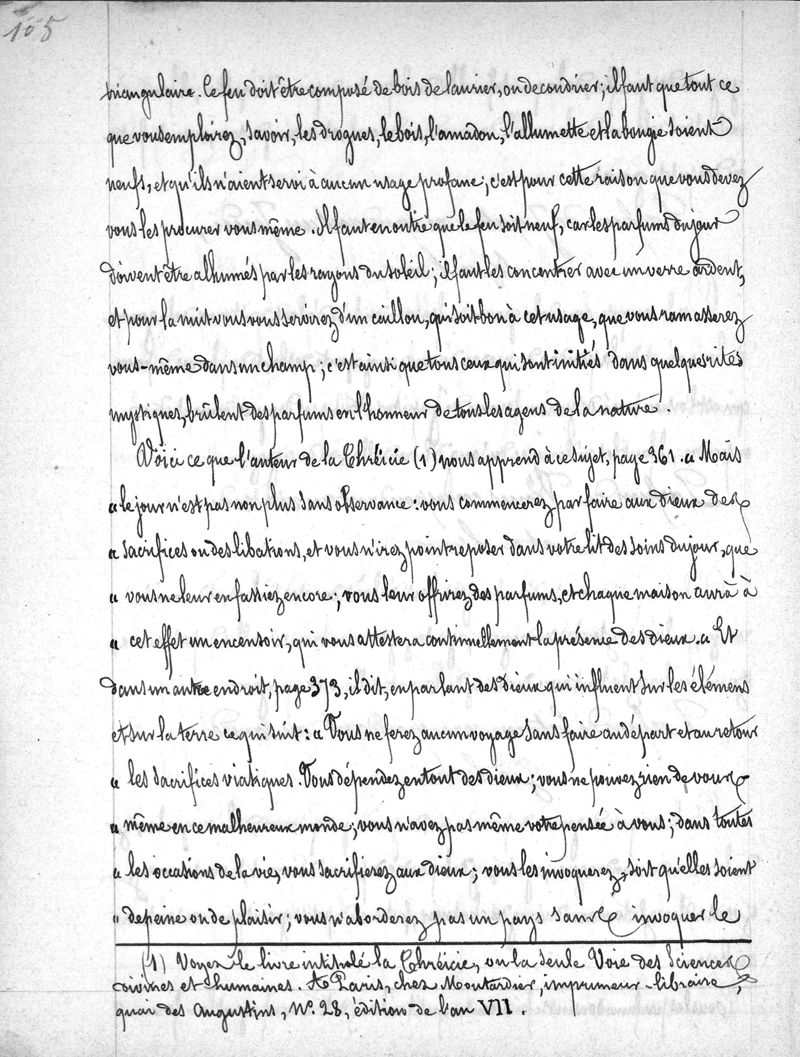 105
triangulaire. Ce feu doit être composé de bois de laurier, ou de coudrier; il faut que tout ce
que vous emploirez, savoir, les drogues, le bois, l'amadou, l'allumette et la bougie soient
neufs, et qu'ils n'aient servi à aucun usage profane; c'est pour cette raison que vous devez
vous les procurer vous même. Il faut en outre que le feu soit neuf, car les parfums du jour
doivent être allumés par les rayons du soleil; il faut les concentrer avec un verre ardent,
et pour la nuit vous vous servirez d'un caillou, qui soit bon à cet usage, que vous ramasserez
vous-même dans un champ; c'est ainsi que tous ceux qui sont initiés dans quelques rites
mystiques, brûlent des parfums en l'honneur de tous les agens de la nature.
Voici ce que l'auteur de la Thréicie (1) nous apprend à ce sujet, page 361. « Mais
« le jour n'est pas non plus sans observance: vous commencerez par faire aux dieux des
« sacrifices ou des libations, et vous n'irez point reposer dans votre lit des soins du jour, que
« vous ne leur en fassiez encore; vous leur offrirez des parfums, et chaque maison aura à
« cet effet un encensoir, qui vous attestera continuellement la présence des dieux. « Et
dans un autre endroit, page 373, il dit, en parlant des dieux qui influent sur les élémens
et sur la terre ce qui suit: « Vous ne ferez aucun voyage sans faire au départ et au retour
« les sacrifices viatiques. Vous dépendez en tout des dieux; vous ne pouvez rien de vous
« même en ce malheureux monde; vous n'avez pas même votre pensée à vous; dans toutes
« les occasions de la vie, vous sacrifierez aux dieux; vous les invoquerez, soit qu'elles soient
« de peine ou de plaisir; vous n'aborderez pas un pays sans invoquer le
(1) Voyez le livre intitulé la Thréicie, ou la seule Voie des Sciences
divines et humaines. A Paris, chez Moutardier, imprimeur-libraire,
quai des Augustins, N°. 28, édition de l'an VII.